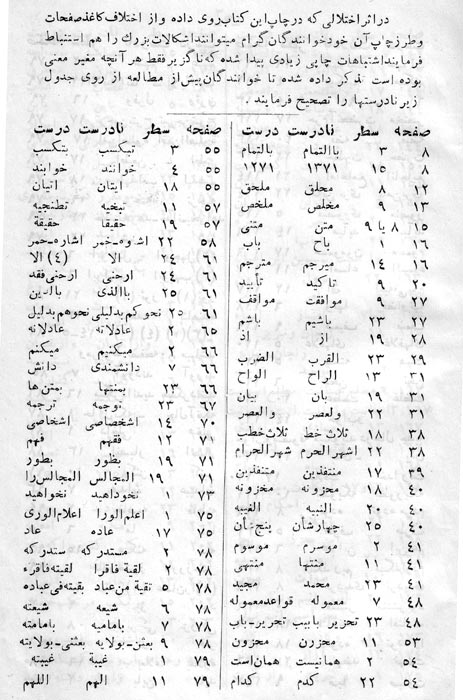 در اثر اختلالی که در چاپ این کتاب روی داده و از اختلاف کاغذ صفحات
وطرز چاپ آن خود خوانندگان گرام میتوانند اشکالات بزرك را هم استنباط
فرمایند اشتباهات چاپی زیادی پیدا شده که ناگزیر فقط هر آنچه مغیر معنی
بوده است تذکر داده شده تا خوانندگان پیش از مطالعه از روی جدول
زیر نادرستها را تصحیح فرمایند .
صفحه سطر نادرست درست
۸ ۳ باالتمام بالتمام
۸ ۱۵ ۱۳۷۱ ۱۲۷۱
۱۲ ۸ محلق ملحق
۱۳ ۹ مخلص ملخص
۱۵ ۸ یا ۹ متن متنی
۱۶ ۱ باح باب
۱۶ ۱۴ میرجم مترجم
۲۰ ۹ تاکید تأیید
۲۷ ۹ موافقت مواقف
۲۷ ۲۳ باشیم باشم
۲۸ ۱۹ از اذ
۲۹ ۲۳ القرب الضرب
۳۱ ۱۳ الراح الواح
۳۱ ۱۹ بان بیان
۳۱ ۲۲ ولعصر والعصر
۳۸ ۱۸ ثلاث خط ثلاث خطب
۳۸ ۲۲ اشهرالحرم شهرالحرام
۳۹ ۱۷ منتفدین متنفذین
۴۰ ۱۸ محزونه مخزونه
۴۰ ۲۰ النبیه الغیبه
۴۰ ۲۵ چهارشأن پنج شأن
۴۱ ۲ موسرم موسوم
۴۱ ۱۱ منتها منتهی
۴۱ ۲۳ محمد مجید
۴۸ ۷ معموله قواعد معموله
۴۸ ۲۳ تحزیر بابیب تحریر-باب
۵۳ ۱۱ محزرن محزون
۵۴ ۲ همانیست همان است
۵۴ ۲۲ کدم کدام
صفحه سطر نادرست درست
۵۵ ۳ تیکسب بتکسب
۵۵ ۴ خوانند خوابند
۵۵ ۱۸ ایتان اتیان
۵۷ ۱۱ تبخیه تطنجیه
۵۷ ۱۹ حقیقا حقیقة
۵۸ ۲۲ اشوه-خمر اشاره-حمر
۶۱ ۲۴ الا (٤) الا
۶۱ ۲۴ ارحنی ازحنی فقد
۶۱ ۲۵ باالذی بالدین
۶۱ ۲۵ نحو کم بدلیلی نحوهم بدلیل
۶۵ ۲ عادلانه عادلانه
۶۶ ۲ میکنیم میکنم
۶۶ ۷ دانشمندی دانش
۶۶ ۲۳ بمنتها بمتن ها
۶۷ ۲۳ توجمه ترجمه
۷۰ ۱۴ اشخصاصی اشخاصی
۷۱ ۱۲ فقهم فهم
۷۱ ۱۹ بظور بطور
۷۱ ۱۹ المجالس المجالس را
۷۳ ۱ نخوداهید نخواهید
۷۵ ۱ اعلم الورا اعلام الوری
۷۵ ۱۷ عاده عاد
۷۸ ۲ مستدرکه ستدرکه
۷۸ ۲ لقیة فاقرا لقیته فاقرء
۷۸ ۵ تقیة من عباد بقیته فی عباده
۷۸ ۶ شیعه شیعته
۷۸ ۷ بامامیه بامامته
۷۸ ۹ بعثن-بولایه بعثنی-بولایته
۷۹ ۱ غیبة غیبته
۷۹ ۱۱ الهم اللهم